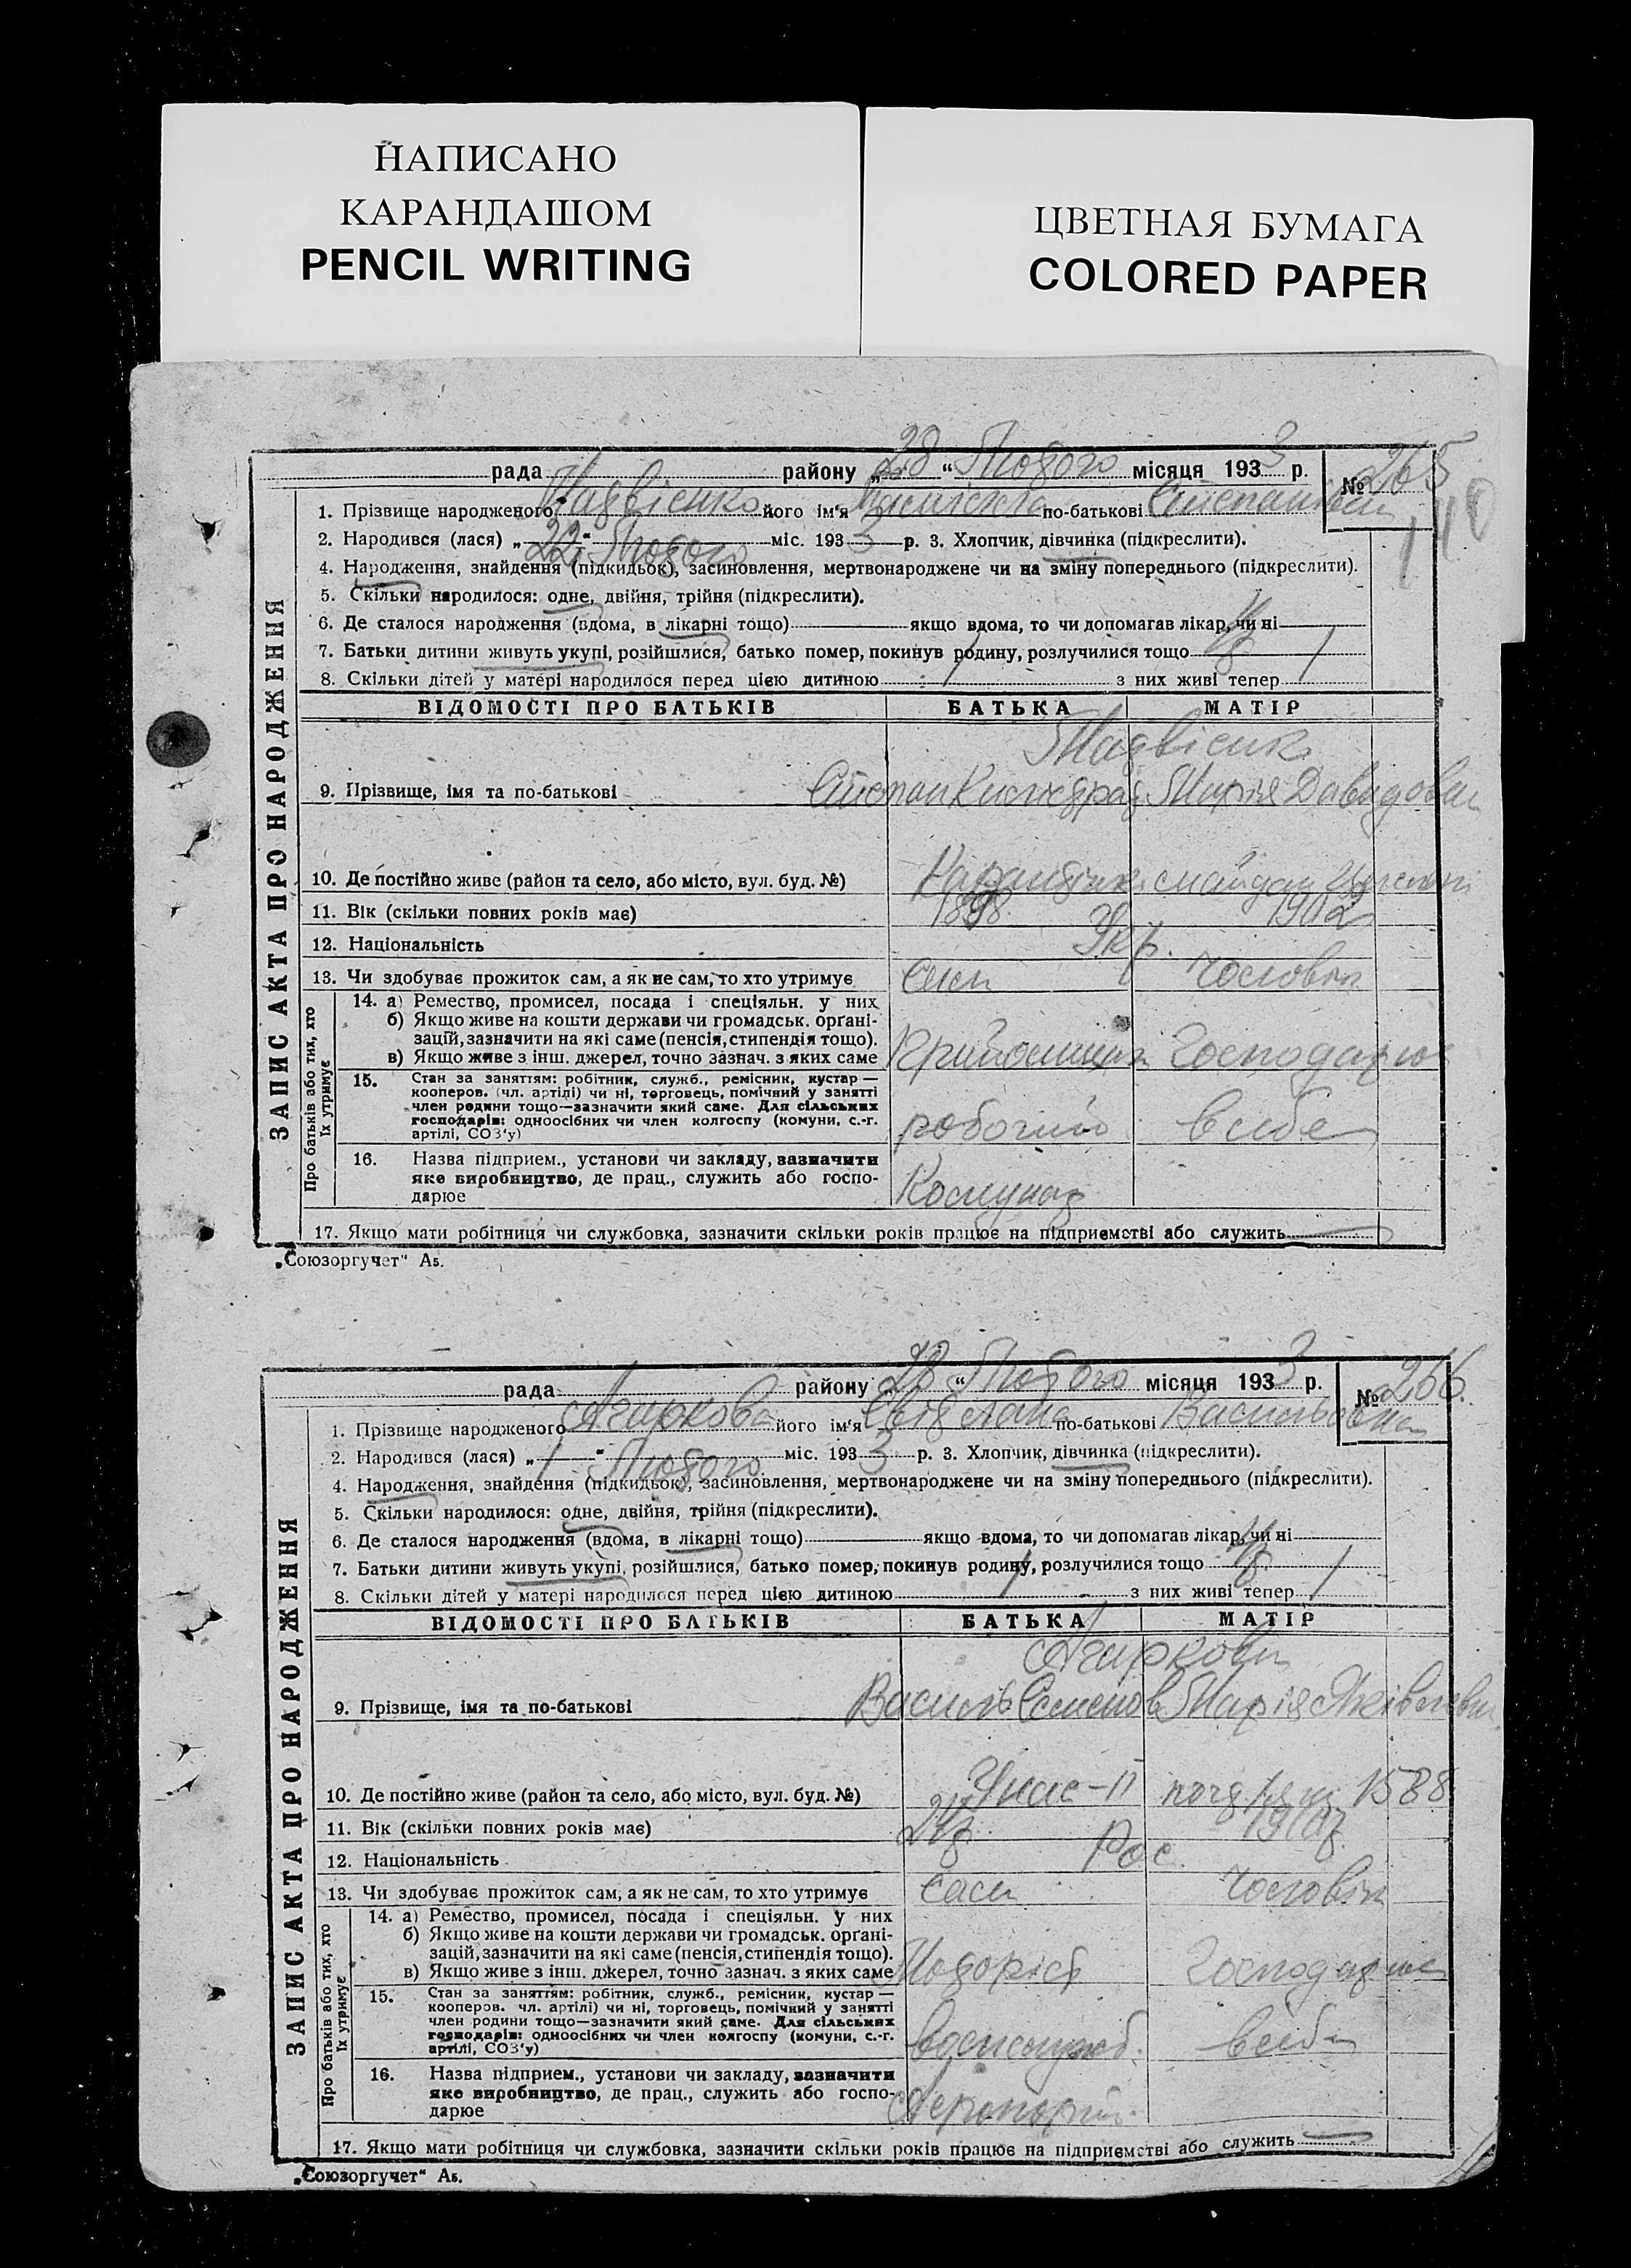 НАПИСАНО
КАРАНДАШОМ
PENCIL WRITING
ЦВЕТНАЯ БУМАГА
COLORED PAPER
рада району „28“ Лютого місяця 1933 р. № 265
140
1. Прізвище народженого його ім'я по-батькові
2. Народився (лася) „22“ Лютого міс. 1933 р. 3. Хлопчик, дівчинка (підкреслити).
4. Народження, знайдення (підкидьок), засиновлення, мертвонароджене чи на зміну попереднього (підкреслити).
5. Скільки народилося: одне, двійня, трійня (підкреслити).
6. Де сталося народження (вдома, в лікарні тощо) якщо вдома, то чи допомагав лікар, чи ні
7. Батьки дитини живуть укупі, розійшлися, батько помер, покинув родину, розлучилися тощо
8. Скільки дітей у матері народилося перед цією дитиною 1 з них живі тепер 1
ЗАПИС АКТА ПРО НАРОДЖЕННЯ
ВІДОМОСТІ ПРО БАТЬКІВ БАТЬКА МАТІР
9. Прізвище, імя та по-батькові Степан Марія Давидовн
10. Де постійно живе (район та село, або місто, вул. буд. №)
11. Вік (скільки повних років має) 1898 1902
12. Національність Укр.
13. Чи здобуває прожиток сам, а як не сам, то хто утримує сам чоловік
Про батьків або тих, хто їх утримує
14. а) Ремество, промисел, посада і спеціяльн. у них
б) Якщо живе на кошти держави чи громадськ. орґані-
зацій, зазначити на які саме (пенсія, стипендія тощо).
в) Якщо живе з інш. джерел, точно зазнач. з яких саме Господарює
15. Стан за заняттям: робітник, служб., ремісник, кустар —
кооперов. (чл. артілі) чи ні, торговець, помічний у занятті
член родини тощо—зазначити який саме. Для сільських
господарів: одноосібних чи член колгоспу (комуни, с.-г.
артілі, СОЗ'у) робочий в себе
16. Назва підприєм., установи чи закладу, зазначити
яке виробництво, де прац., служить або госпо-
дарює
17. Якщо мати робітниця чи службовка, зазначити скільки років працює на підприємстві або служить
„Союзоргучет“ А5.
рада району „28“ Лютого місяця 1933 р. № 266.
1. Прізвище народженого його ім'я Світлана по-батькові Васильовна
2. Народився (лася) „1“ Лютого міс. 1933 р. 3. Хлопчик, дівчинка (підкреслити).
4. Народження, знайдення (підкидьок), засиновлення, мертвонароджене чи на зміну попереднього (підкреслити).
5. Скільки народилося: одне, двійня, трійня (підкреслити).
6. Де сталося народження (вдома, в лікарні тощо) якщо вдома, то чи допомагав лікар, чи ні
7. Батьки дитини живуть укупі, розійшлися, батько помер, покинув родину, розлучилися тощо
8. Скільки дітей у матері народилося перед цією дитиною 1 з них живі тепер 1
ЗАПИС АКТА ПРО НАРОДЖЕННЯ
ВІДОМОСТІ ПРО БАТЬКІВ БАТЬКА МАТІР
9. Прізвище, імя та по-батькові Василь Семенов Марія
10. Де постійно живе (район та село, або місто, вул. буд. №)
11. Вік (скільки повних років має)
12. Національність Рос.
13. Чи здобуває прожиток сам, а як не сам, то хто утримує сам чоловік
Про батьків або тих, хто їх утримує
14. а) Ремество, промисел, посада і спеціяльн. у них
б) Якщо живе на кошти держави чи громадськ. орґані-
зацій, зазначити на які саме (пенсія, стипендія тощо).
в) Якщо живе з інш. джерел, точно зазнач. з яких саме Моторіст Господарює
15. Стан за заняттям: робітник, служб., ремісник, кустар —
кооперов. чл. артілі) чи ні, торговець, помічний у занятті
член родини тощо—зазначити який саме. Для сільських
господарів: одноосібних чи член колгоспу (комуни, с.-г.
артілі, СОЗ'у) в себе
16. Назва підприєм., установи чи закладу, зазначити
яке виробництво, де прац., служить або госпо-
дарює
17. Якщо мати робітниця чи службовка, зазначити скільки років працює на підприємстві або служить
„Союзоргучет“ А5.